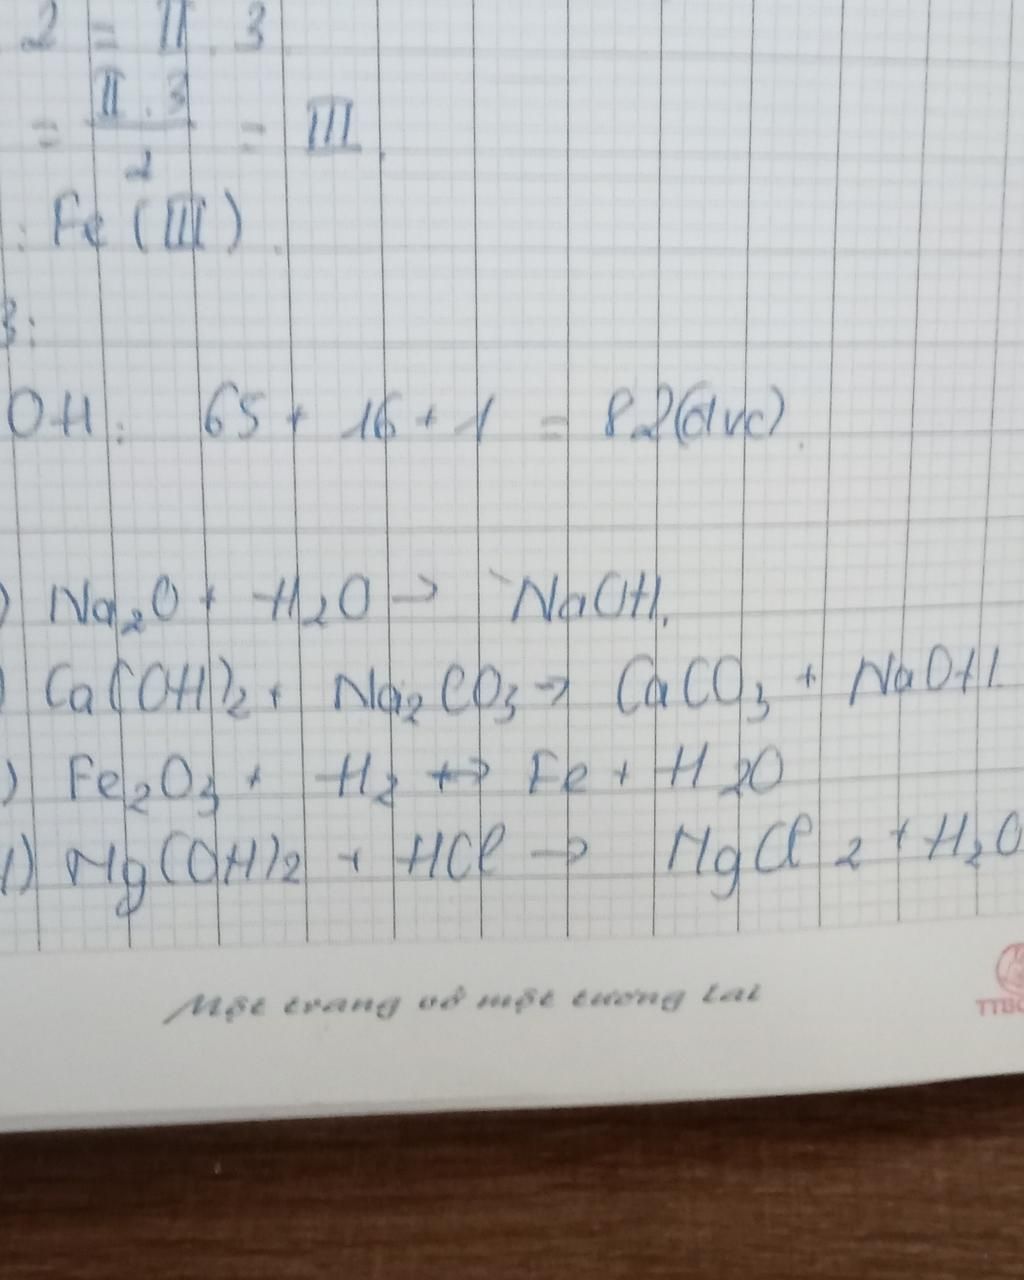 2 = II . 3
= II . 3 / 2 = III
: Fe (III)
3:
OH: 65 + 16 + 1 = 82(đvc).
) Na₂O + H₂O → NaOH.
) Ca(OH)₂ + Na₂CO₃ → CaCO₃ + NaOH.
) Fe₂O₃ + H₂ → Fe + H₂O
d) Mg(OH)₂ + HCl → MgCl₂ + H₂O
Một trang vở một tương lai